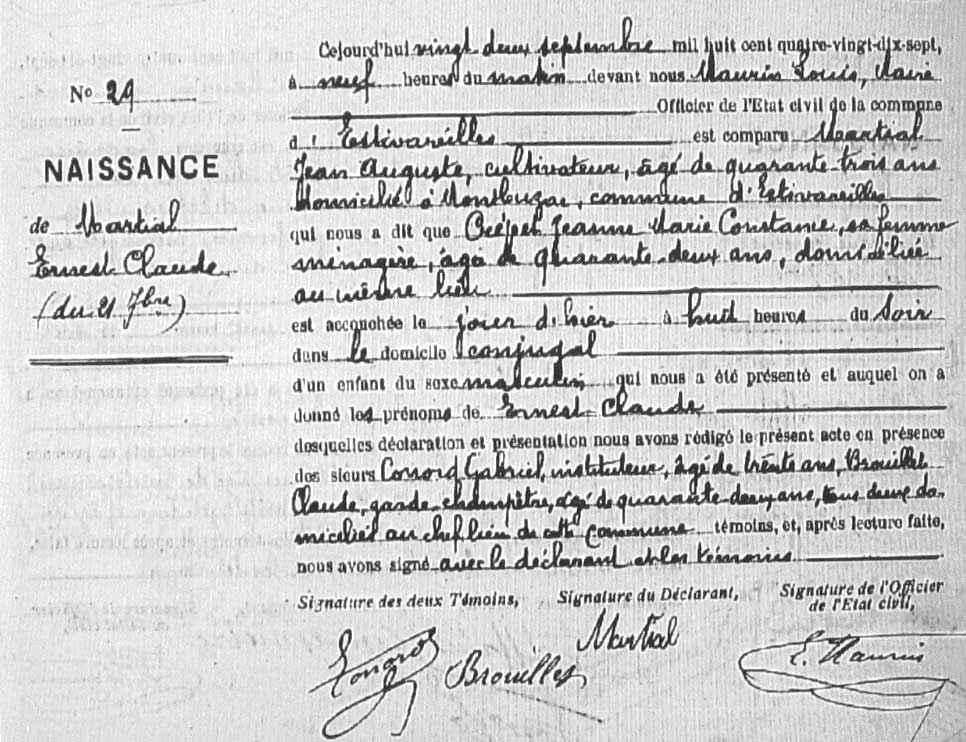 Cejourd'hui vingt deux septembre mil huit cent quatre-vingt-dix-sept,
à neuf heures du matin devant nous Maurin Louis, Maire
Officier de l'Etat civil de la commune
d'Estivareilles est comparu Martial
Jean Auguste, cultivateur, âgé de quarante trois ans
domicilié à commune d'Estivareilles
qui nous a dit que Crépet Jeanne Marie Constance, sa femme
ménagère, âgée de quarante-deux ans, domiciliée
au même lieu
est accouchée le jour d'hier à huit heures du soir
dans le domicile conjugal
d'un enfant du sexe masculin qui nous a été présenté et auquel on a
donné les prénoms de Ernest Claude
desquelles déclaration et présentation nous avons rédigé le présent acte en présence
des sieurs Gabriel, instituteur, âgé de trente ans, Brouillet
Claude, garde-champêtre, âgé de quarante deux ans, tous deux do-
miciliés au chef lieu de cette commune témoins, et, après lecture faite,
nous avons signé avec le déclarant et les témoins
No 29
NAISSANCE
de Martial
Ernest Claude
(du 21 7bre)
Signature des deux Témoins,
Signature du Déclarant,
Signature de l'Officier
de l'Etat civil,
Brouillet
Martial
L. Maurin